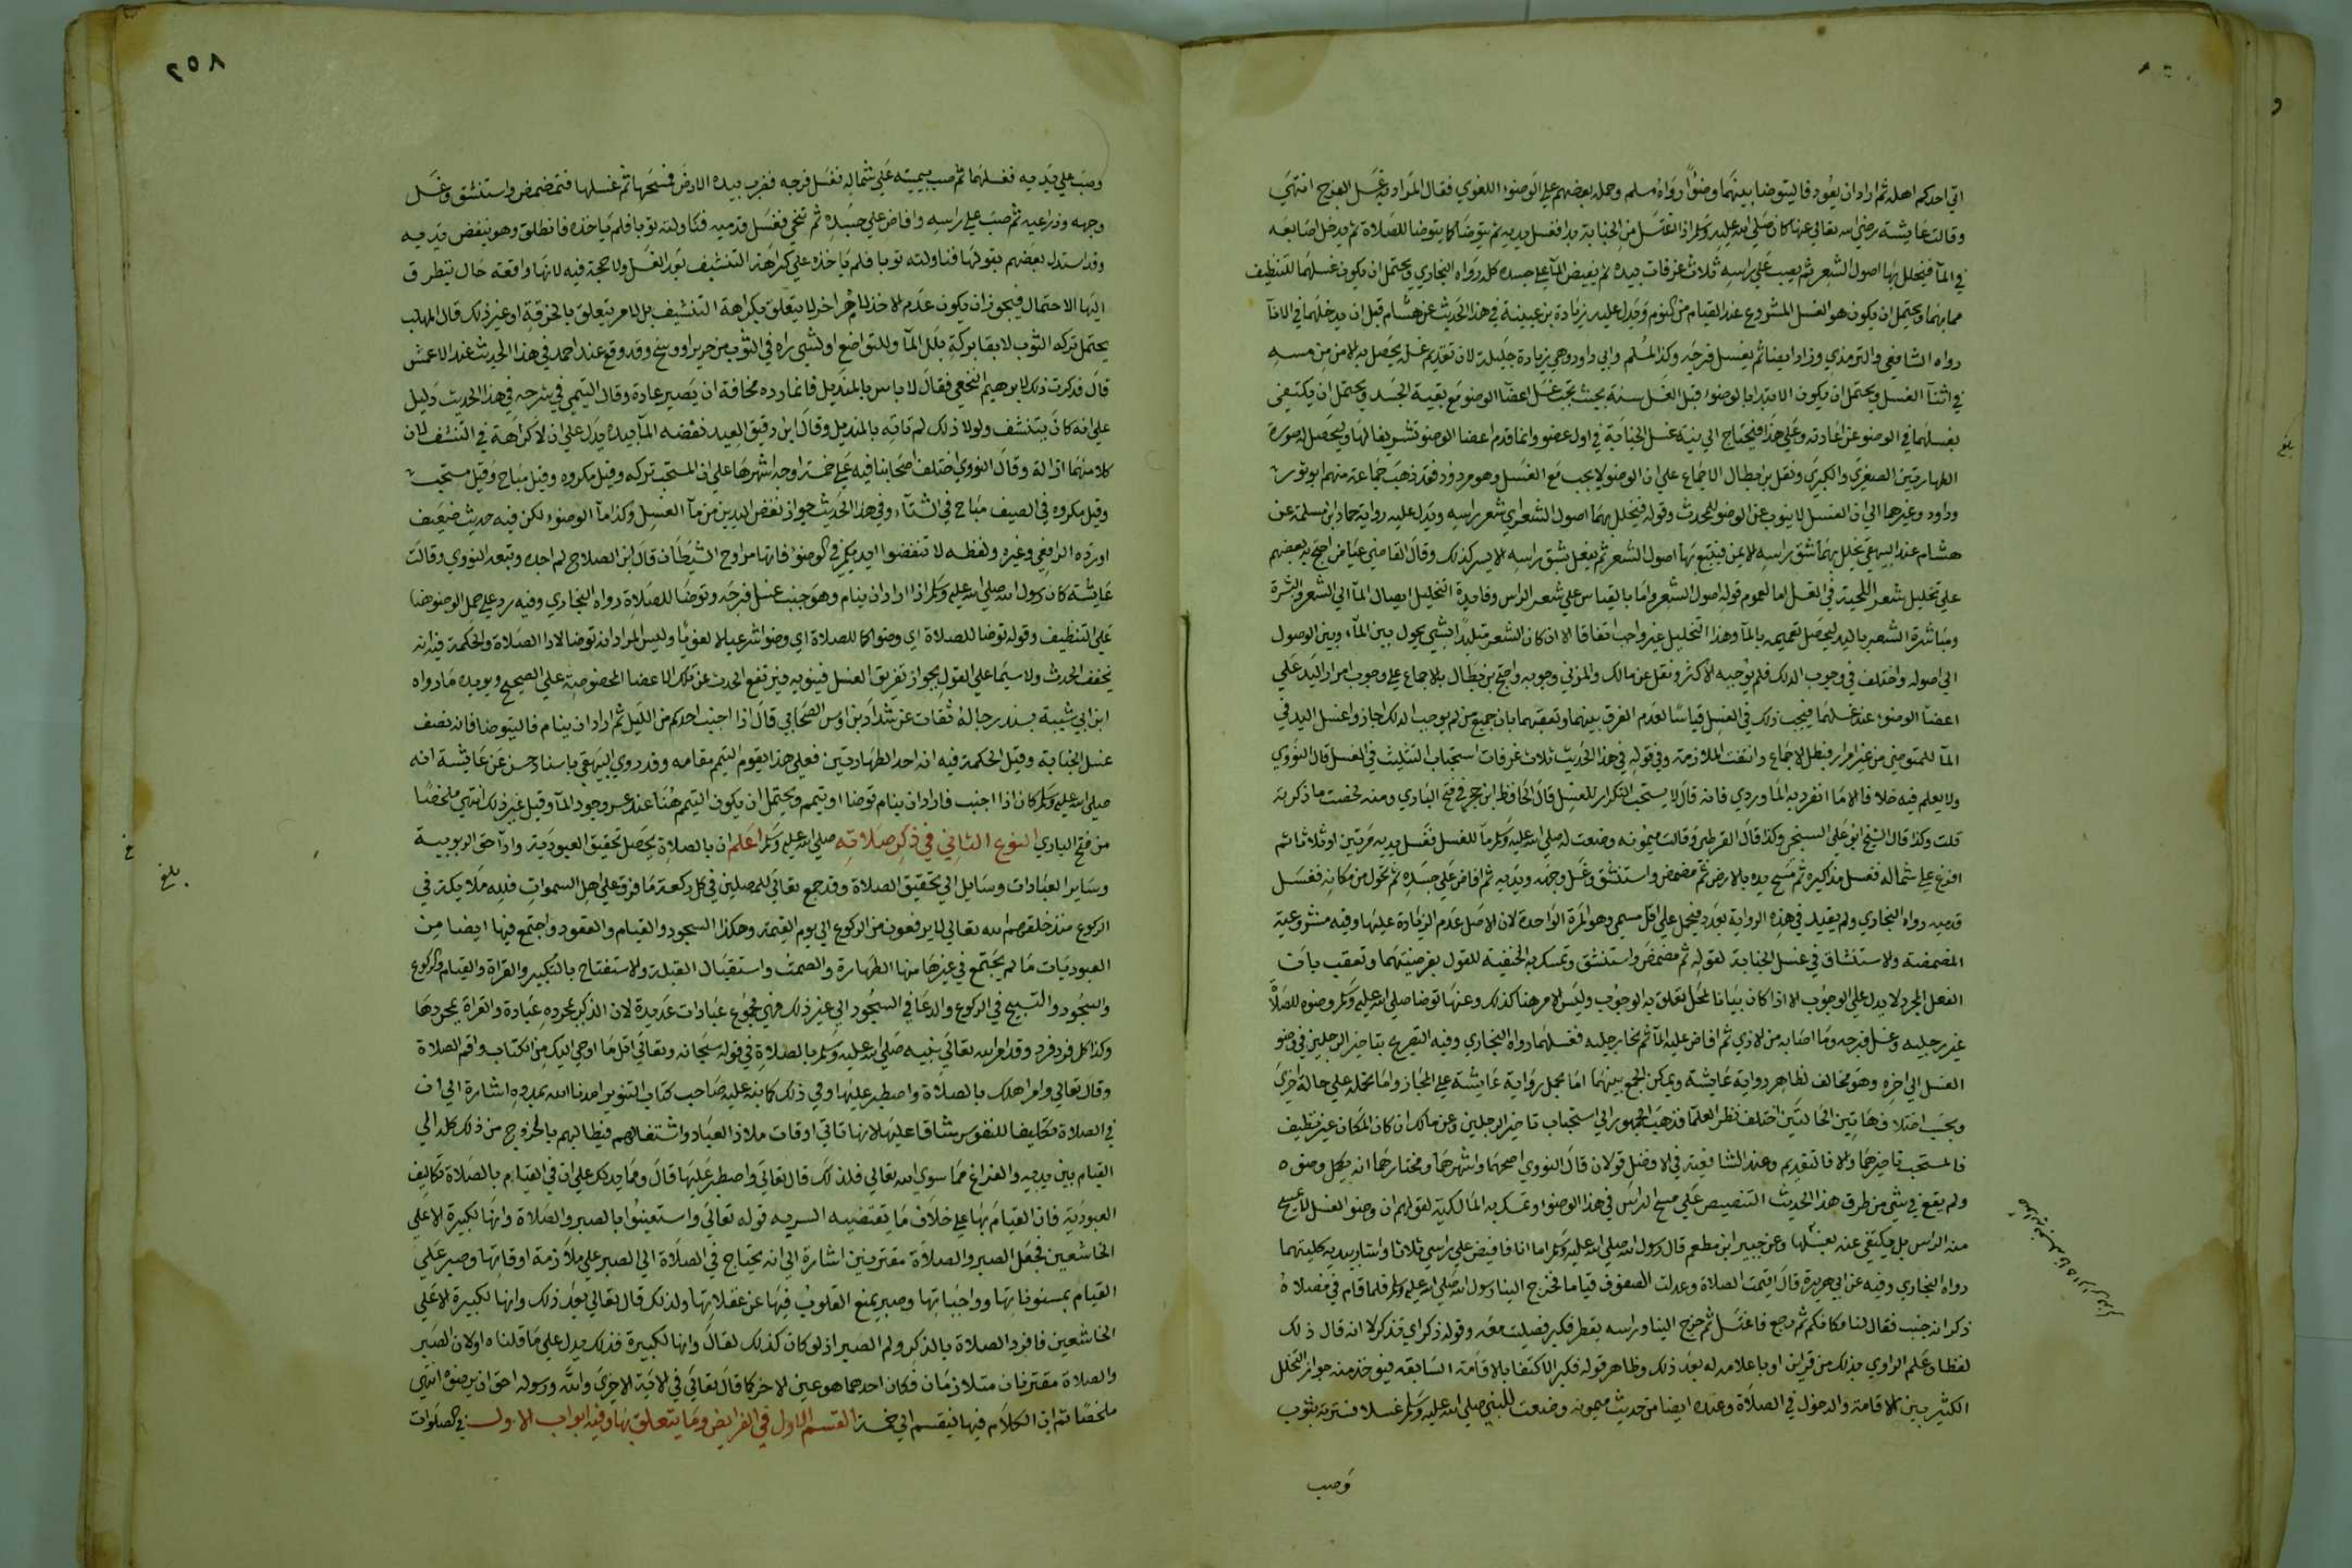 اتي احدكم اهله ثم اراد ان يعود فاليتوضا بينهما وضوًا رواه مسلم وحمله بعضهم علي الوضوء اللغوي فقال المراد به غسل الفرج انتهي
وقالت عايشة رضي الله تعالي عنها كان صلي الله عليه وسلم اذا اغتسل من الجنابة بدا فغسل يديه ثم يتوضا كما يتوضا للصلاة ثم يدخل اصابعه
في المآ فيخلل بها اصول الشعر ثم يصب علي راسه ثلاث غرفات بيده ثم يفيض المآ علي جسده كله رواه البخاري ويحتمل ان يكون غسلهما للتنظيف
مما بهما ويحتمل ان يكون هو الغسل المشروع عند القيام من النوم ويدل عليه زيادة بن عيينة في هذا الحديث عن هشام قبل ان يدخلهما في الانآ
رواه الشافعي والترمذي وزاد ايضا ثم يغسل فرجه وكذا لمسلم وابي داود وهي زيادة جليلة لان تقديم غسله يحصل به الامن من مسه
في اثنآ الغسل ويحتمل ان يكون الابتدا بالوضوء قبل الغسل سنة بحيث يجب غسل اعضآ الوضو مع بقية الجسد ويحتمل ان يكتفي
بغسلهما في الوضو عن اعادته وعلي هذا فيحتاج الي نية غسل الجنابة في اول عضو وانما قدم اعضا الوضو تشريفا لها ويحصل له صورة
الطهارتين الصغري والكبري ونقل بن بطال الاجماع علي ان الوضو لا يجب مع الغسل وهو مردود فقد ذهب جماعة منهم ابو ثور
وداود وغيرهما الي ان الغسل لا ينوب عن الوضو للمحدث وقوله فيخلل بهما اصول الشعر اي شعر راسه ويدل عليه رواية حماد ابن سلمة عن
هشام عند البيهقي يخلل بهما شق راسه الايمن فيتبع بها اصول الشعر ثم يفعل بشق راسه الايسر كذلك وقال القاضي عياض احتج به بعضهم
علي تخليل شعر اللحية في الغسل اما لعموم قوله اصول الشعر واما بالقياس علي شعر الراس وفايدة التخليل ايصال المآ الي الشعر والبشرة
ومباشرة الشعر باليد ليحصل تعميمه بالمآ وهذا التخليل غير واجب اتفاقا الا ان كان الشعر متلبدا بشي يحول بين المآ وبين الوصول
الي اصوله واختلف في وجوب الدلك فلم يوجبه الاكثر ونقل عن مالك والمزني وجوبه واحتج بن بطال بالاجماع علي وجوب امرار اليد علي
اعضآ الوضوء عند غسلها فيجب ذلك في الغسل قياسا لعدم الفرق بينهما وتعقبهما بان جميع من لم يوجب الدلك اجازوا غسل اليد في
المآ للمتوضي من غير امرار فبطل الاجماع وانتفت الملازمة وفي قوله في هذا الحديث ثلاث غرفات استحباب التثليث في الغسل قال النووي
ولا يعلم فيه خلافا الا ما انفرد به الماوردي فانه قال لا يستحب التكرار للغسل قال الحافظ ابن حجر في فتح الباري ومنه لخصت ما ذكرته
قلت وكذا قال الشيخ ابو علي السنجي وكذا قال القرطبي وقالت ميمونة وضعت له صلي الله عليه وسلم مآ للغسل فغسل يديه مرتين او ثلاثا ثم
افرغ علي شماله فغسل مذاكيره ثم مسح يده بالارض ثم مضمض واستنشق وغسل وجهه ويديه ثم افاض علي جسده ثم تحول من مكانه فغسل
قدميه رواه البخاري ولم يقيد في هذه الرواية بعدد فيحمل علي اقل مسمي وهو المرة الواحدة لان الاصل عدم الزيادة عليها وفيه مشروعية
المضمضة والاستنشاق في غسل الجنابة لقوله ثم مضمض واستنشق وتمسك به الحنفية للقول بفرضيتهما وتعقب بان
الفعل المجرد لا يدل علي الوجوب الا اذا كان بيانا لمجمل تعلق به الوجوب وليس الامر هنا كذلك وعنها توضا صلي الله عليه وسلم وضوه للصلاة
غير رجليه وغسل فرجه وما اصابه من الاذي ثم افاض عليه المآ ثم نحا رجليه فغسلهما رواه البخاري وفيه التصريح بتاخير الرجلين في وضو
الغسل الي اخره وهو مخالف لظاهر رواية عايشة ويمكن الجمع بينهما اما بحمل رواية عايشة علي المجاز واما بحمله علي حالة اخري
وبحسب اختلاف هاتين الحالتين اختلف نظر العلما فذهب الجمهور الي استحباب تاخير الرجلين وعن مالك ان كان المكان غير نظيف
فالمستحب تاخيرهما والا فالتقديم وعند الشافعية في الافضل قولان قال النووي اصحهما واشهرهما ومختارهما انه يكمل وضوه
ولم يقع في شي من طرق هذا الحديث التنصيص علي مسح الراس في هذا الوضوء وتمسك به المالكية لقولهم ان وضو الغسل لا يمسح
منه الراس بل يكتفي عنه بغسلها وعن جبير ابن مطعم قال رسول الله صلي الله عليه وسلم اما انا فافيض علي راسي ثلاثا واشار بيديه كلتيهما
رواه البخاري وفيه عن ابي هريرة قال اقيمت الصلاة وعدلت الصفوف قياما فخرج الينا رسول الله صلي الله عليه وسلم فلما قام في مصلاه
ذكر انه جنب فقال لنا مكانكم ثم رجع فاغتسل ثم خرج الينا وراسه يقطر فكبر فصليت معه وقوله ذكر اي تذكر لا انه قال ذلك
لفظا وعلم الراوي بذلك من قراين او باعلامه له بعد ذلك وظاهر قوله فكبر الاكتفا بالاقامة السابقه فيوخذ منه جواز التخلل
الكثير بين الاقامة والدخول في الصلاة وعنده ايضا من حديث ميمونه وضعت للنبي صلي الله عليه وسلم غسلا فسترته بثوب
وصب
٢٥٨
وصب علي يديه فغسلهما ثم صب بيمينه علي شماله فغسل فرجه فضرب بيده الارض فمسحها ثم غسلها فتمضمض واستنشق وغسل
وجهه وذراعيه ثم صب علي راسه وافاض علي جسده ثم تنحي فغسل قدميه فناولته ثوبا فلم ياخذه فانطلق وهو ينفض يديه
وقد استدل بعضهم بقولها فناولته ثوبا فلم ياخذه علي كراهة التنشيف بعد الغسل ولا حجة فيه لانها واقعة حال يتطرق
اليها الاحتمال فيجوز ان يكون عدم الاخذ لامر اخر لا يتعلق بكراهة التنشيف بل لامر يتعلق بالخرقة او غير ذلك قال المهلب
يحتمل تركه الثوب لابقا بركة بلل المآ وللتواضع او لشي راه في الثوب من حرير او وسخ وقد وقع عند احمد في هذا الحديث عند الاعمش
قال فذكرت ذلك لابرهيم النخعي فقال لا باس بالمنديل فانما رده مخافة ان يصير عادة وقال التيمي في شرحه في هذا الحديث دليل
علي انه كان يتنشف ولولا ذلك لم تاته بالمنديل وقال ابن دقيق العيد نفضه المآ بيده يدل علي ان لا كراهة في التنشف لان
كلا منهما ازالة وقال النووي اختلف اصحابنا فيه علي خمسة اوجه اشهرها علي ان المستحب تركه وقيل مكروه وقيل مباح وقيل مستحب
وقيل مكروه في الصيف مباح في الشتآ وفي هذا الحديث جواز نفض اليدين من مآ الغسل وكذا مآ الوضوء لكن فيه حديث ضعيف
اورده الرافعي وغيره ولفظه لا تنفضوا ايديكم في الوضوء فانها مراوح الشيطان قال ابن الصلاح لم اجده وتبعه النووي وقالت
عايشة كان رسول الله صلي الله عليه وسلم اذا اراد ان ينام وهو جنب غسل فرجه وتوضا للصلاة رواه البخاري وفيه رد علي حمل الوضو هنا
علي التنظيف وقوله توضا للصلاة اي وضوا كما للصلاة اي وضوا شرعيا لا لغويا وليس المراد انه توضا لادا الصلاة والحكمة فيه انه
يخفف الحدث ولا سيما علي القول بجواز تفريق الغسل فينويه فيرتفع الحدث عن تلك الاعضا المخصوصة علي الصحيح ويويده ما رواه
ابن ابي شيبة بسند رجاله ثقات عن شداد بن اوس الصحابي قال اذا اجنب احدكم من الليل ثم اراد ان ينام فاليتوضا فانه نصف
غسل الجنابة وقيل الحكمة فيه انه احد الطهارتين فعلي هذا يقوم التيمم مقامه وقد روي البيهقي باسناد حسن عن عايشة انه
صلي الله عليه وسلم كان اذا اجنب فاراد ان ينام توضا او تيمم ويحتمل ان يكون التيمم هنا عند عسر وجود المآ وقيل غير ذلك انتهي ملخصًا
من فتح الباري النوع الثاني في ذكر صلاته صلي الله عليه وسلم اعلم ان بالصلاة يحصل تحقيق العبودية وادآ حق الربوبية
وساير العبادات وسايل الي تحقيق الصلاة وقد جمع تعالي للمصلين في كل ركعة ما فرق علي اهل السموات فلله ملايكة في
الركوع منذ خلقهم الله تعالي لا يرفعون من الركوع الي يوم القيمة وهكذا السجود والقيام والقعود واجتمع فيها ايضا من
العبوديات ما لم يجتمع في غيرها منها الطهارة والصمت واستقبال القبلة والاستفتاح بالتكبير والقراة والقيام والركوع
والسجود والتسبيح في الركوع والدعا في السجود الي غير ذلك فهي مجموع عبادات عديدة لان الذكر بمجرده عبادة والقراة بمجردها
وكذا كل فرد فرد وقد امر الله تعالي نبيه صلي الله عليه وسلم بالصلاة في قوله سبحانه وتعالي اتل ما اوحي اليك من الكتاب واقم الصلاة
وقال تعالي وامر اهلك بالصلاة واصطبر عليها وفي ذلك كما نبه عليه صاحب كتاب التنوير امدنا الله بمدده اشارة الي ان
في الصلاة تكليفا للنفوس شاقا عليها لانها تاتي اوقات ملاذ العباد واشتغالهم فيطالبهم بالخروج من ذلك كله الي
القيام بين يديه والفراغ مما سوي الله تعالي فلذلك قال تعالي واصطبر عليها قال ومما يدلك علي ان في القيام بالصلاة تكاليف
العبودية فان القيام بها علي خلاف ما تقتضيه البشريه قوله تعالي واستعينوا بالصبر والصلاة وانها لكبيرة الا علي
الخاشعين فجعل الصبر والصلاة مقترنين اشارة الي انه يحتاج في الصلاة الي الصبر علي ملازمة اوقاتها وصبر علي
القيام بمسنوناتها وواجباتها وصبر يمنع القلوب فيها عن غفلاتها ولذلك قال تعالي بعد ذلك وانها لكبيرة الا علي
الخاشعين فافرد الصلاة بالذكر ولم الصبر اذ لو كان كذلك لقال وانها لكبيرة فذلك يدل علي ما قلناه او لان الصبر
والصلاة مقترنان متلازمان فكان احدهما هو عين الاخر كما قال تعالي في الاية الاخري والله ورسوله احق ان يرضوه انتهي
ملخصًا ثم ان الكلام فيها ينقسم الي خمسة القسم الاول في الفرايض وما يتعلق بها وفيه ابواب الاول في الصلوات
بلغ